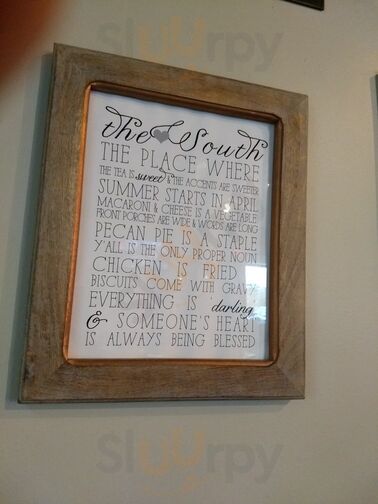 Slurrpy
the South
THE PLACE WHERE
THE TEA IS sweet & THE ACCENTS ARE SWEETER
SUMMER STARTS IN APRIL
MACARONI & CHEESE IS A VEGETABLE
FRONT PORCHES ARE WIDE & WORDS ARE LONG
PECAN PIE IS A STAPLE
Y'ALL IS THE ONLY PROPER NOUN
CHICKEN IS FRIED
BISCUITS COME WITH GRAVY
EVERYTHING IS darling
& SOMEONE'S HEART
IS ALWAYS BEING BLESSED
Slurrpy